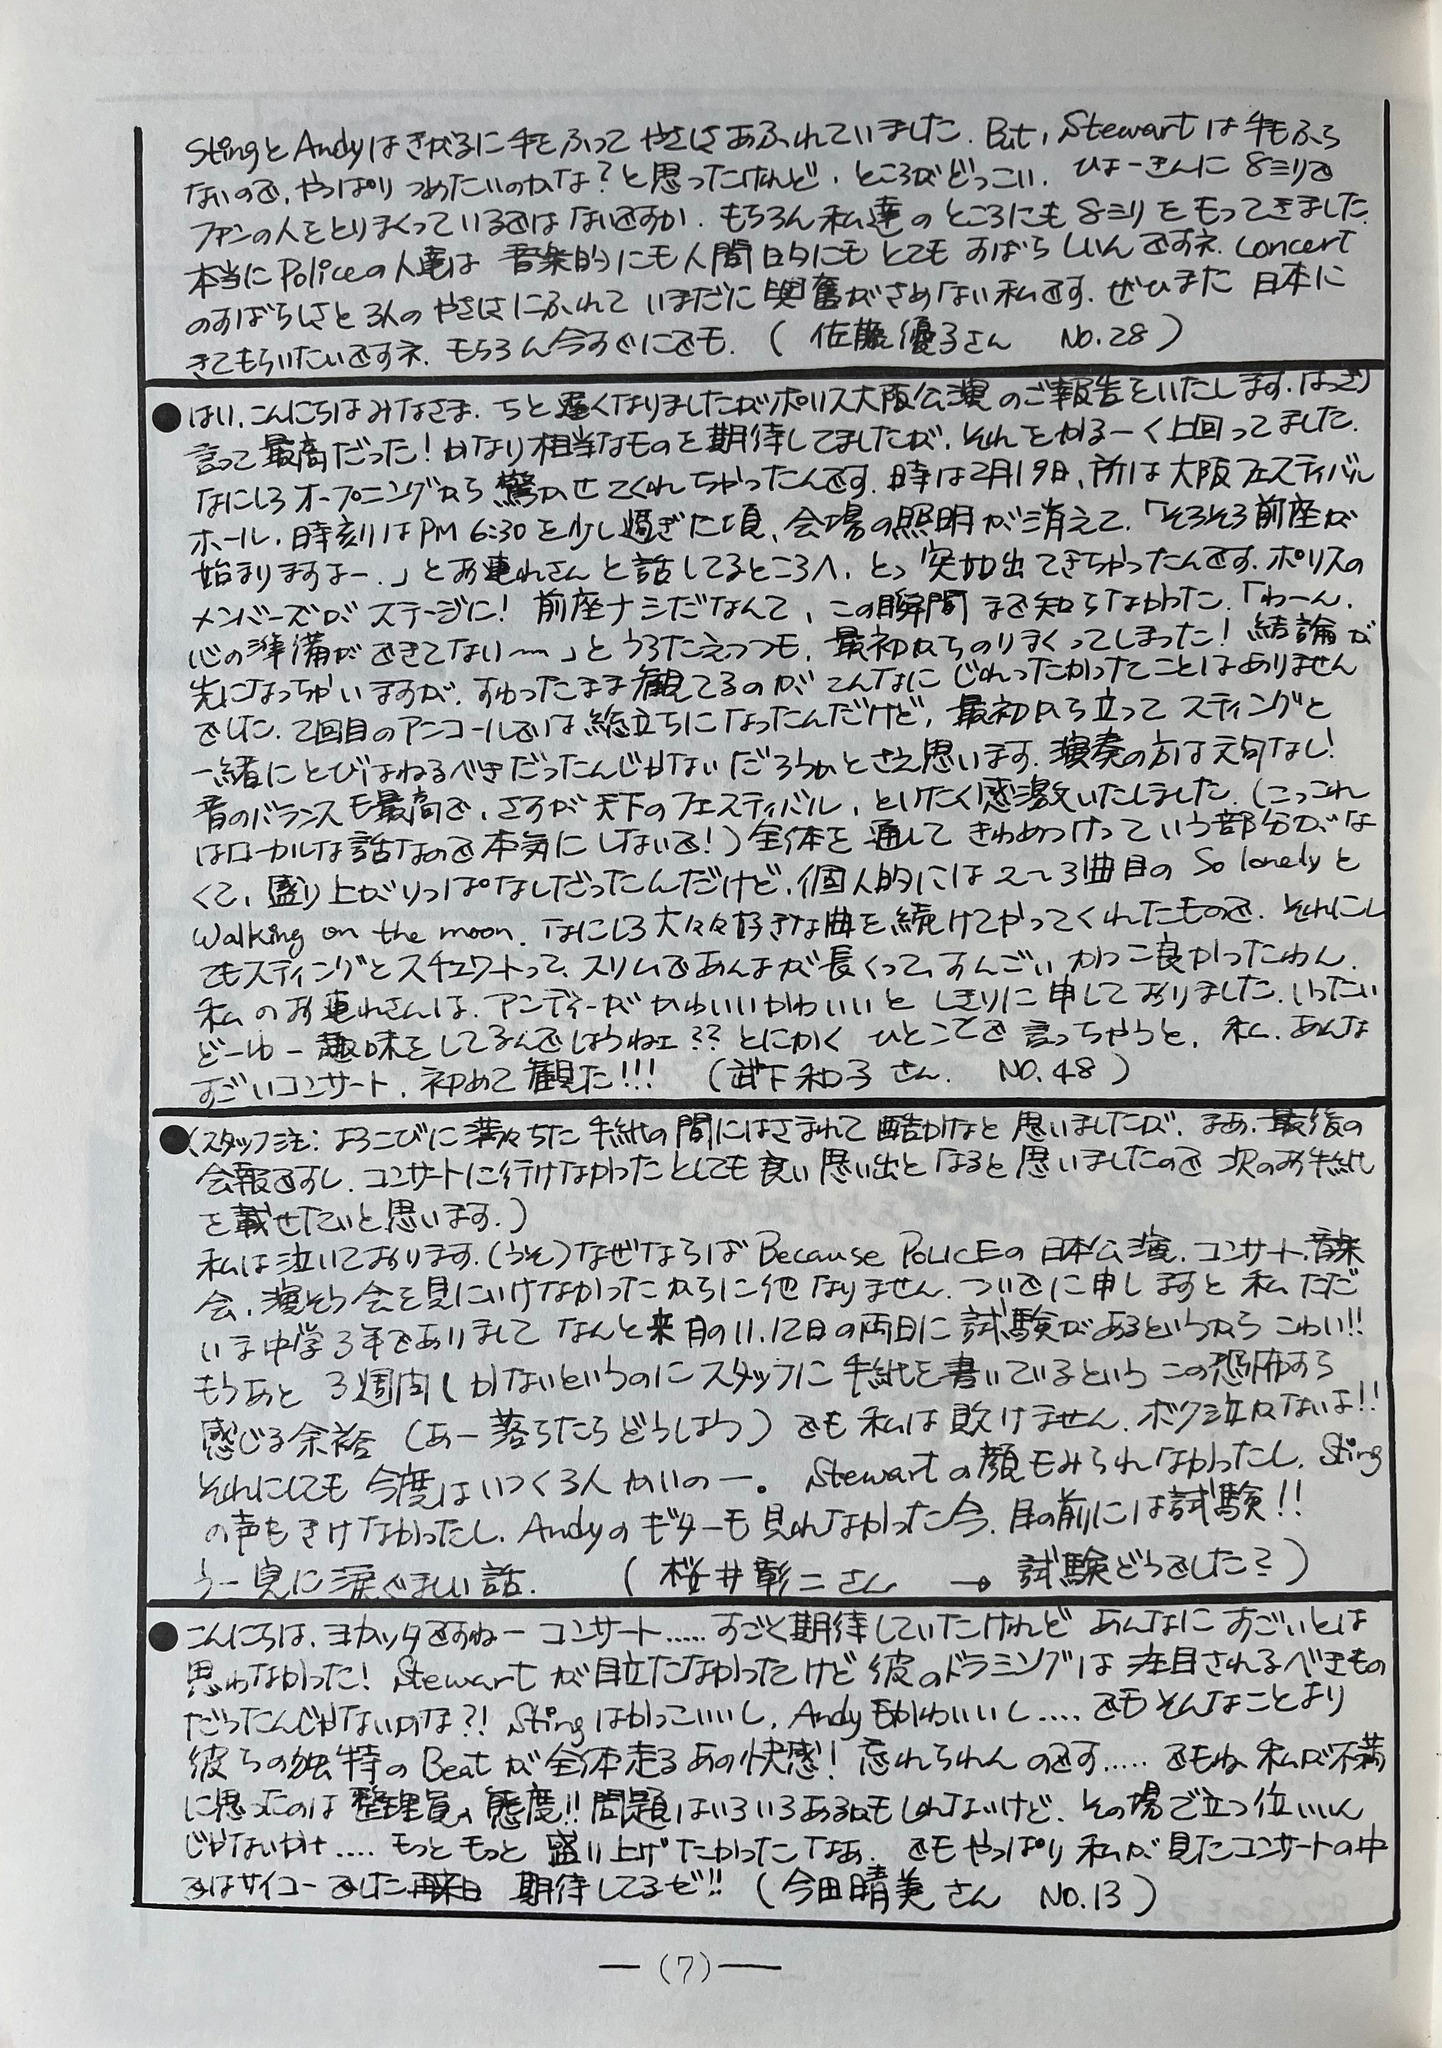 StingとAndyはきがるに手をふって やさしさあふれていました. But, Stewartは手もふら
ないので、やっぱり つめたいのかな？と思ったけれど、ところがどっこい. ひょーきんに 8ミリで
ファンの人をとりまくっているではないですか. もちろん私達のところにも8ミリをもってきました.
本当にPoliceの人達は 音楽的にも人間的にも とても すばらしいんですネ. concert
のすばらしさと3人のやさしさにふれて いまだに興奮がさめない私です. ぜひまた 日本に
きてもらいたいですネ. もちろん今すぐにでも. (佐藤優子さん No.28)
●はい、こんにちはみなさま. ちと遅くなりましたがポリス大阪公演のご報告をいたします. はっきり
言って最高だった！かなり相当なものを期待してましたが、それをかるーく上回ってました.
なにしろオープニングから驚かせてくれちゃったんです. 時は2月19日、所は大阪フェスティバル
ホール、時刻はPM 6:30を少し過ぎた頃、会場の照明が消えて、「そろそろ前座が
始まりますよー.」とお連れさんと話してるところへ、とっ突如出てきちゃったんです. ポリスの
メンバーズがステージに！前座ナシだなんて、この瞬間まで知らなかった.「わーん.
心の準備ができてない〜」とうろたえつつも、最初からのりまくってしまった！結論が
先になっちゃいますが、すわったまま観てるのがこんなにじれったかったことはありません
でした. 2回目のアンコールでは総立ちになったんだけど、最初から立ってスティングと
一緒にとびはねるべきだったんじゃないだろうかとさえ思います. 演奏の方は文句なし！
音のバランスも最高で、さすが天下のフェスティバル、といたく感激いたしました.(こっこれ
はローカルな話なので本気にしないで！)全体を通して きわめつけっていう部分がな
くて、盛り上がりっぱなしだったんだけど、個人的には2〜3曲目の So lonelyと
Walking on the moon. なにしろ大々々好きな曲を続けてやってくれたもので. それにし
てもスティングとスチュワートって、スリムであんよが長くって、すんごいかっこ良かったわん.
私のお連れさんは、アンディーがかわいいかわいいと しきりに申しておりました. いったい
どーゆー趣味をしてるんでしょうねェ？？とにかく ひとことで言っちゃうと、私、あんな
すごいコンサート、初めて観た!!! (武下和子さん. NO.48)
●(スタッフ注：よろこびに満ちた手紙の間にはさまれて酷かなと思いましたが、まあ、最後の
会報ですし、コンサートに行けなかったとしても良い思い出となると思いましたので次のお手紙
を載せたいと思います.)
私は泣いております.(うそ)なぜならば Because POLICEの日本公演、コンサート、音楽
会、演そう会を見にいけなかったからに他なりません. ついでに申しますと 私 ただ
いま中学3年でありまして なんと来月の11.12日の両日に試験があるというから こわい!!
もうあと 3週間しかないというのにスタッフに手紙を書いているという この恐怖すら
感じる余裕 (あー落ちたらどうしよう) でも私は敗けません. ボク泣かないよ!!
それにしても 今度はいつくるんかいのー。 Stewartの顔もみられなかったし、Sting
の声もきけなかったし、Andyのギターも見れなかった今、目の前には試験!!
うー実に涙ぐましい話. (桜井彰二さん → 試験どうでした？)
●こんにちは、ヨカッタですねー コンサート..... すごく期待していたけれど あんなに すごいとは
思わなかった！Stewartが目立たなかったけど彼のドラミングは注目されるべきもの
だったんじゃないかな?! Stingはかっこいいし、Andyもかわいいし.... でもそんなことより
彼らの独特のBeatが全体走るあの快感！忘れられんのです..... でもね 私が不満
に思ったのは整理員の態度!! 問題はいろいろあるかもしれないけど、その場で立つ位いいん
じゃないかナ.... もっともっと 盛り上げたかったなあ. でもやっぱり私が見たコンサートの中
ではサイコーでした 再来日 期待してるゼ!! (今田晴美さん NO.13)
—(7)—